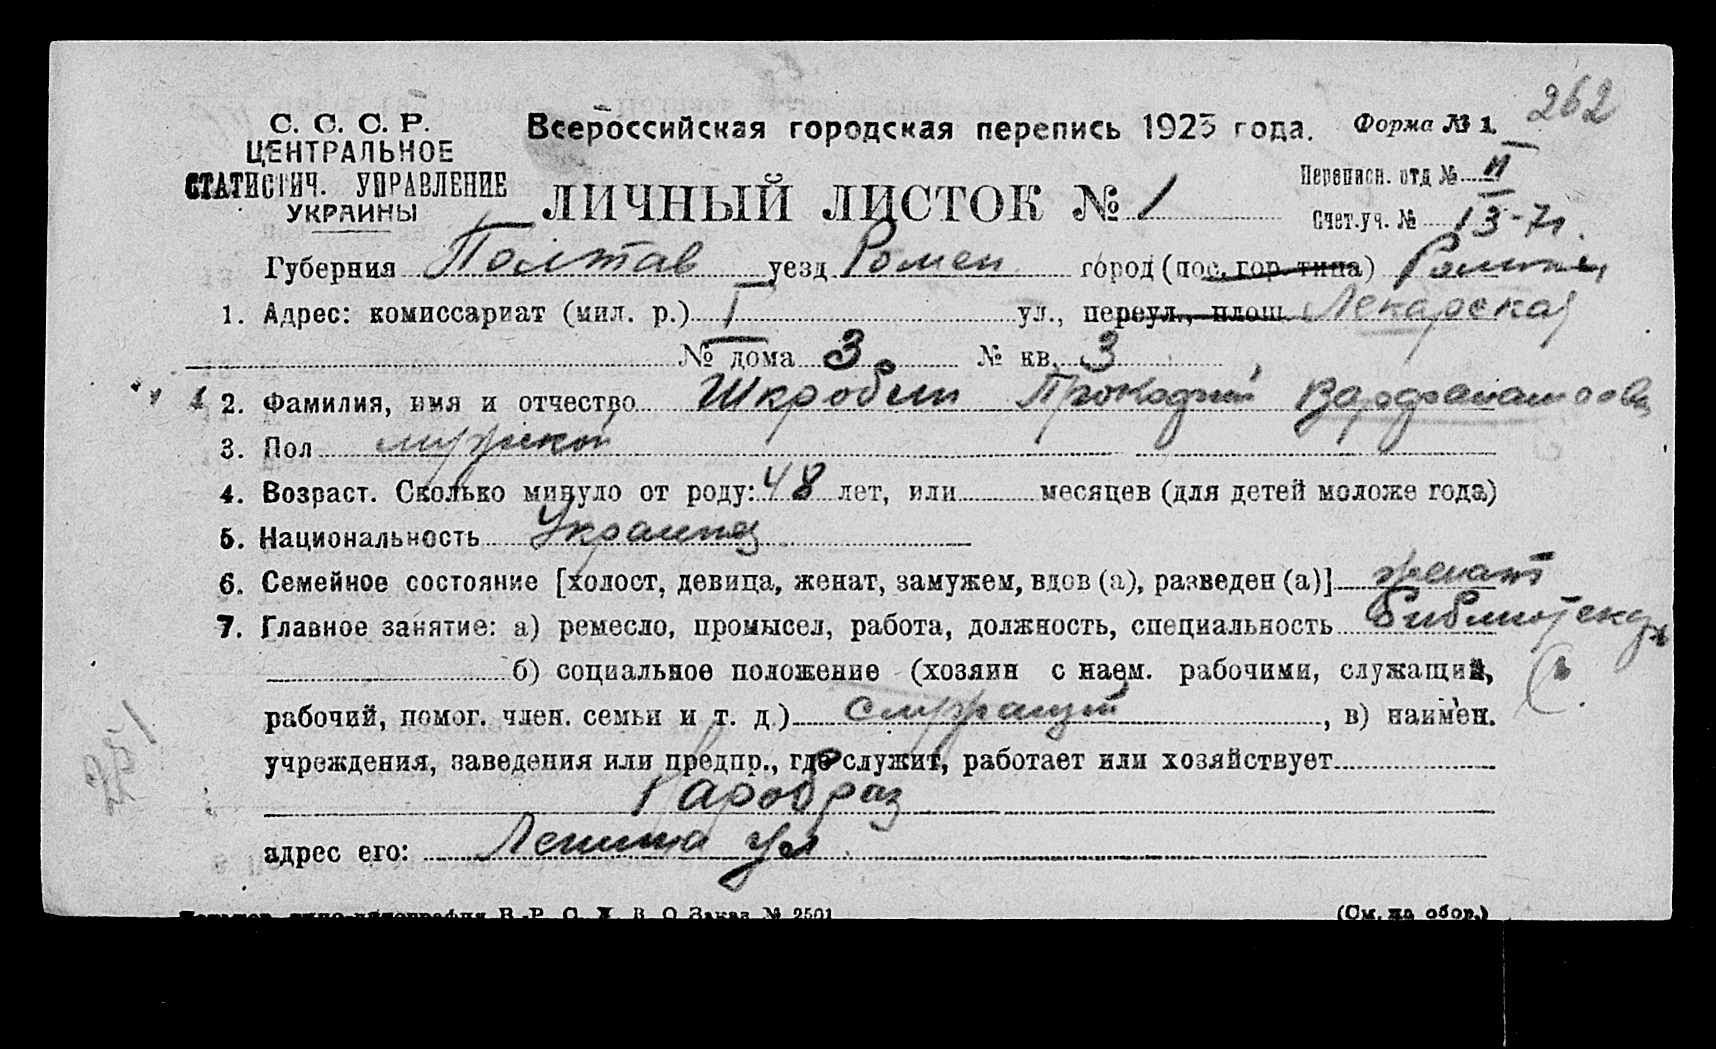 262
С. С. С. Р.
ЦЕНТРАЛЬНОЕ
СТАТИСТИЧ. УПРАВЛЕНИЕ
УКРАИНЫ
Всероссийская городская перепись 1923 года. Форма № 1.
ЛИЧНЫЙ ЛИСТОК № 1
Переписн. отд № II
Счет. уч. № 13-
Губерния Полтав уезд Ромен город (пос. гор. типа) Ромны
1. Адрес: комиссариат (мил. р.) I ул., переул., площ. Лекарская
№ дома 3 № кв. 3
2. Фамилия, имя и отчество
3. Пол мужской
4. Возраст. Сколько минуло от роду: 48 лет, или месяцев (для детей моложе года)
5. Национальность Украинец
6. Семейное состояние [холост, девица, женат, замужем, вдов (а), разведен (а)] женат
7. Главное занятие: а) ремесло, промысел, работа, должность, специальность
б) социальное положение (хозяин с наем. рабочими, служащий,
рабочий, помог. член. семьи и т. д.) служащий, в) наимен.
учреждения, заведения или предпр., где служит, работает или хозяйствует
Наробраз
адрес его: Ленина ул.
Заказ № 2501
(См. на обор.)